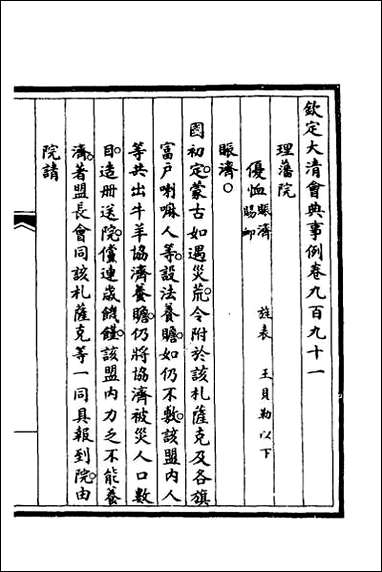 欽定大清會典事例卷九百九十一
理藩院
優恤 賑濟 賜卹 旌表 王貝勒以下
賑濟○
國初定蒙古如遇災荒令附於該札薩克及各旗
富戶喇嘛人等設法養贍如仍不敷該盟內人
等共出牛羊協濟養贍仍將協濟被災人口數
目造冊送院儻連歲饑饉該盟內力乏不能養
濟者盟長會同該札薩克等一同具報到院由
院請